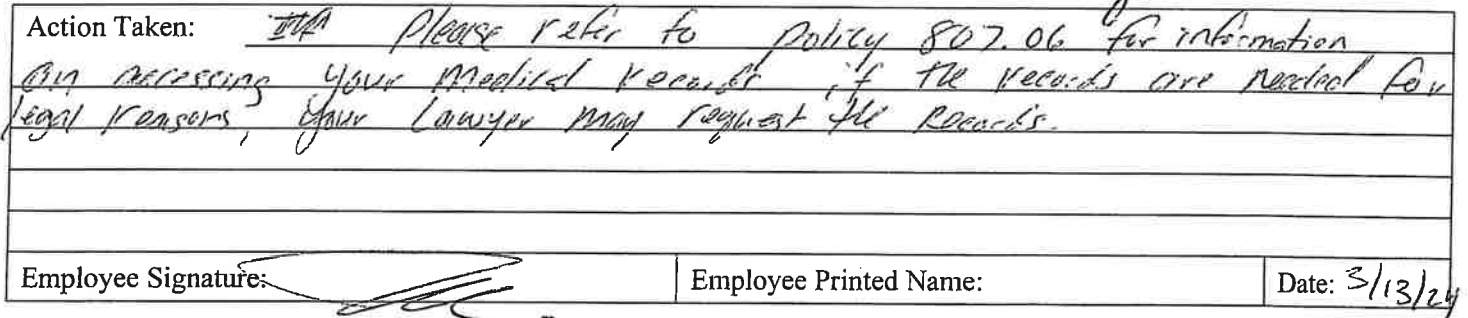 Action Taken: Please refer to Policy 807.06 for information
on accessing your Medical Records, if the records are needed for
legal reasons, your Lawyer may request the Records.
Employee Signature: Employee Printed Name: Date: 3/13/24